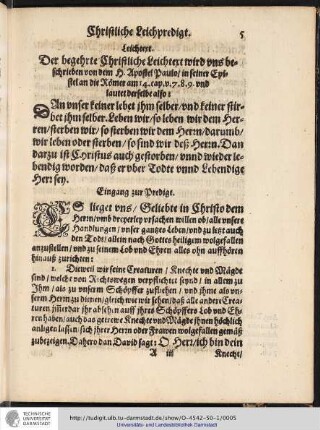 Christliche Leichpredigt. 5
Leichtext.
Der begehrte Christliche Leichtext wird vns be-
schrieben von dem H. Apostel Paulo/ in seiner Epi-
stel an die Römer am 14. cap. v. 7. 8. 9. vnd
lautet derselbe also:
DAn vnser keiner lebet ihm selber/ vnd keiner stir-
bet ihm selber. Leben wir/ so leben wir dem Her-
ren/ sterben wir/ so sterben wir dem Herrn/ darumb/
wir leben oder sterben/ so sind wir deß Herrn. Dan
darzu ist Christus auch gestorben/ vnnd wieder le-
bendig worden/ daß er vber Todte vnnd Lebendige
Herr sey.
Eingang zur Predigt.
ES lieget vns/ Geliebte in Christo dem
Herrn/ vmb dreyerley vrsachen willen ob/ alle vnsere
Handlungen/ vnser gantzes Leben/ vnd zu letzt auch
den Todt/ allein nach Gottes heiligem wolgefallen
anzustellen/ vnd zu seinem Lob vnd Ehren alles ohn auffhören
hinauß zurichten:
1. Dieweil wir seine Creaturen/ Knechte vnd Mägde
sind/ welche von Rechtswegen verpflichtet seynd/ in allem zu
Ihm/ als zu vnserm Schöpffer zufliehen/ vnd ihme als vn-
serm Herrn zu dienen/ gleich wie wir sehen/ daß alle andere Crea-
turen jsterdar ihr absehen auff ihres Schöpffers Lob vnd Eh-
ren haben/ auch das getrewe Knechte vnd Mägde ihnen höchlich
anligen lassen/ sich jhrer Herrn oder Frawen wolgefallen gemäß
zubezeigen. Dahero dan David sagt: O Herr/ ich bin dein
A iii Knecht/
TECHNISCHE
UNIVERSITÄT
DARMSTADT
http://tudigit.ulb.tu-darmstadt.de/show/O-4542-50-1/0005
Universitäts- und Landesbibliothek Darmstadt